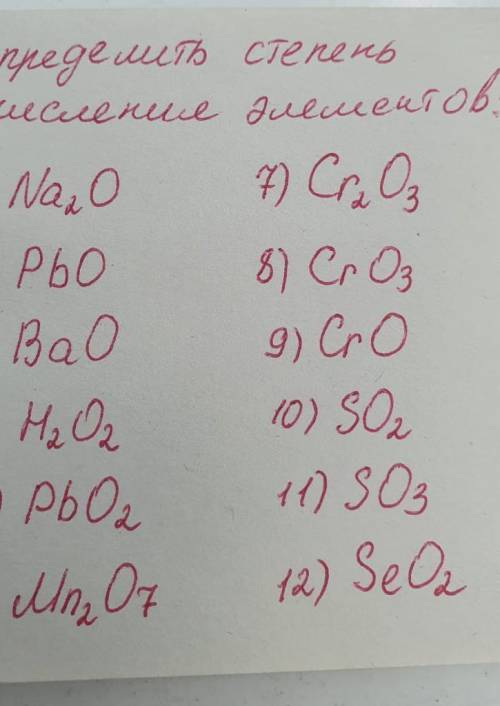 пределить степень
исление элементов.
Na₂O
PbO
BaO
H₂O₂
) PbO₂
Mn₂O₇
7) Cr₂O₃
8) CrO₃
9) CrO
10) SO₂
11) SO₃
12) SeO₂